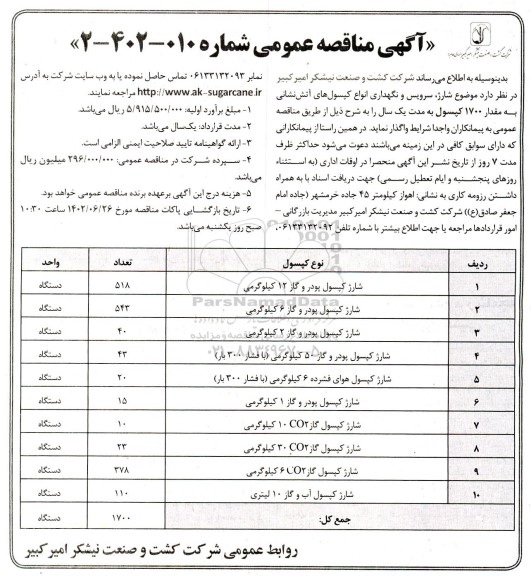 «آگهی مناقصه عمومی شماره ۰۱۰-۴۰۲-۲»
بدینوسیله به اطلاع می‌رساند شرکت کشت و صنعت نیشکر امیرکبیر
در نظر دارد موضوع شارژ، سرویس و نگهداری انواع کپسول‌های آتش‌نشانی
به مقدار ۱۷۰۰ کپسول به مدت یک سال را به شرح ذیل از طریق مناقصه
عمومی به پیمانکاران واجد شرایط واگذار نماید. در همین راستا از پیمانکارانی
که دارای سوابق کافی در این زمینه می‌باشند دعوت می‌شود حداکثر ظرف
مدت ۷ روز از تاریخ نشر این آگهی منحصرا در اوقات اداری (به استثناء
روزهای پنجشنبه و ایام تعطیل رسمی) جهت دریافت اسناد با به همراه
داشتن رزومه کاری به نشانی: اهواز کیلومتر ۴۵ جاده خرمشهر (جاده امام
جعفر صادق(ع)) شرکت کشت و صنعت نیشکر امیرکبیر مدیریت بازرگانی -
امور قراردادها مراجعه یا جهت اطلاع بیشتر با شماره تلفن ۰۶۱۳۳۱۳۲۰۹۲،
نمابر ۰۶۱۳۳۱۳۲۰۹۳ تماس حاصل نموده یا به وب سایت شرکت به آدرس
http://www.ak-sugarcane.ir مراجعه نمایند.
۱- مبلغ برآورد اولیه: ۵/۹۱۵/۵۰۰/۰۰۰ ریال می‌باشد.
۲- مدت قرارداد: یک‌سال می‌باشد.
۳- ارائه گواهینامه تایید صلاحیت ایمنی الزامی است.
۴- سپرده شرکت در مناقصه عمومی: ۲۹۶/۰۰۰/۰۰۰ میلیون ریال
می‌باشد.
۵- هزینه درج این آگهی برعهده برنده مناقصه عمومی خواهد بود.
۶- تاریخ بازگشایی پاکات مناقصه مورخ ۱۴۰۲/۰۶/۲۶ ساعت ۱۰:۳۰
صبح روز یکشنبه می‌باشد.
ردیف نوع کپسول تعداد واحد
۱ شارژ کپسول پودر و گاز ۱۲ کیلوگرمی ۵۱۸ دستگاه
۲ شارژ کپسول پودر و گاز ۶ کیلوگرمی ۵۴۳ دستگاه
۳ شارژ کپسول پودر و گاز ۲ کیلوگرمی ۴۰ دستگاه
۴ شارژ کپسول پودر و گاز ۵۰ کیلوگرمی (با فشار ۳۰۰ بار) ۴۳ دستگاه
۵ شارژ کپسول هوای فشرده ۶ کیلوگرمی (با فشار ۳۰۰ بار) ۲۰ دستگاه
۶ شارژ کپسول پودر و گاز ۱ کیلوگرمی ۱۵ دستگاه
۷ شارژ کپسول گاز CO۲ ۱۰ کیلوگرمی ۱۰ دستگاه
۸ شارژ کپسول گاز CO۲ ۳۰ کیلوگرمی ۲۳ دستگاه
۹ شارژ کپسول گاز CO۲ ۶ کیلوگرمی ۳۷۸ دستگاه
۱۰ شارژ کپسول آب و گاز ۱۰ لیتری ۱۱۰ دستگاه
جمع کل: ۱۷۰۰ دستگاه
ParsNamadData
۰۲۱-۸۸۳۴۹۶۷۰-۵
روابط عمومی شرکت کشت و صنعت نیشکر امیر کبیر